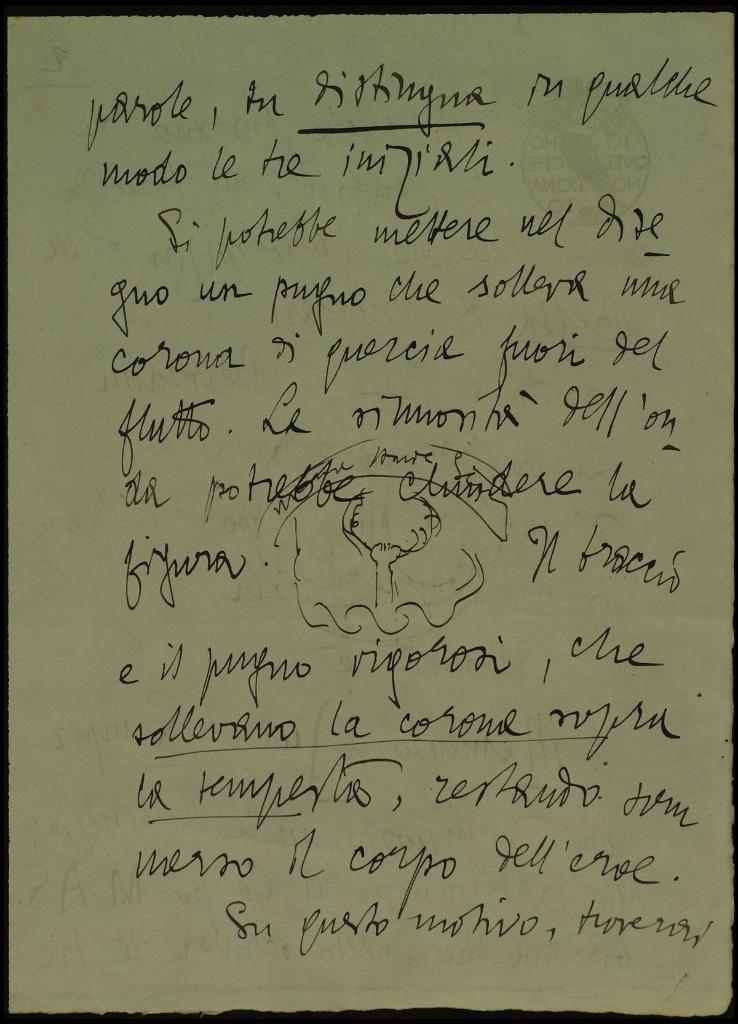 parole, tu distingua in qualche
modo le tre iniziali.
Si potrebbe mettere nel dise
gno un pugno che solleva una
corona di quercia fuori del
flutto. La sinuosità dell'on
da potrebbe chiudere la
figura. Il braccio
e il pugno vigorosi, che
sollevano la corona sopra
la tempesta, restando som
merso il corpo dell'eroe.
Su questo motivo, troverai